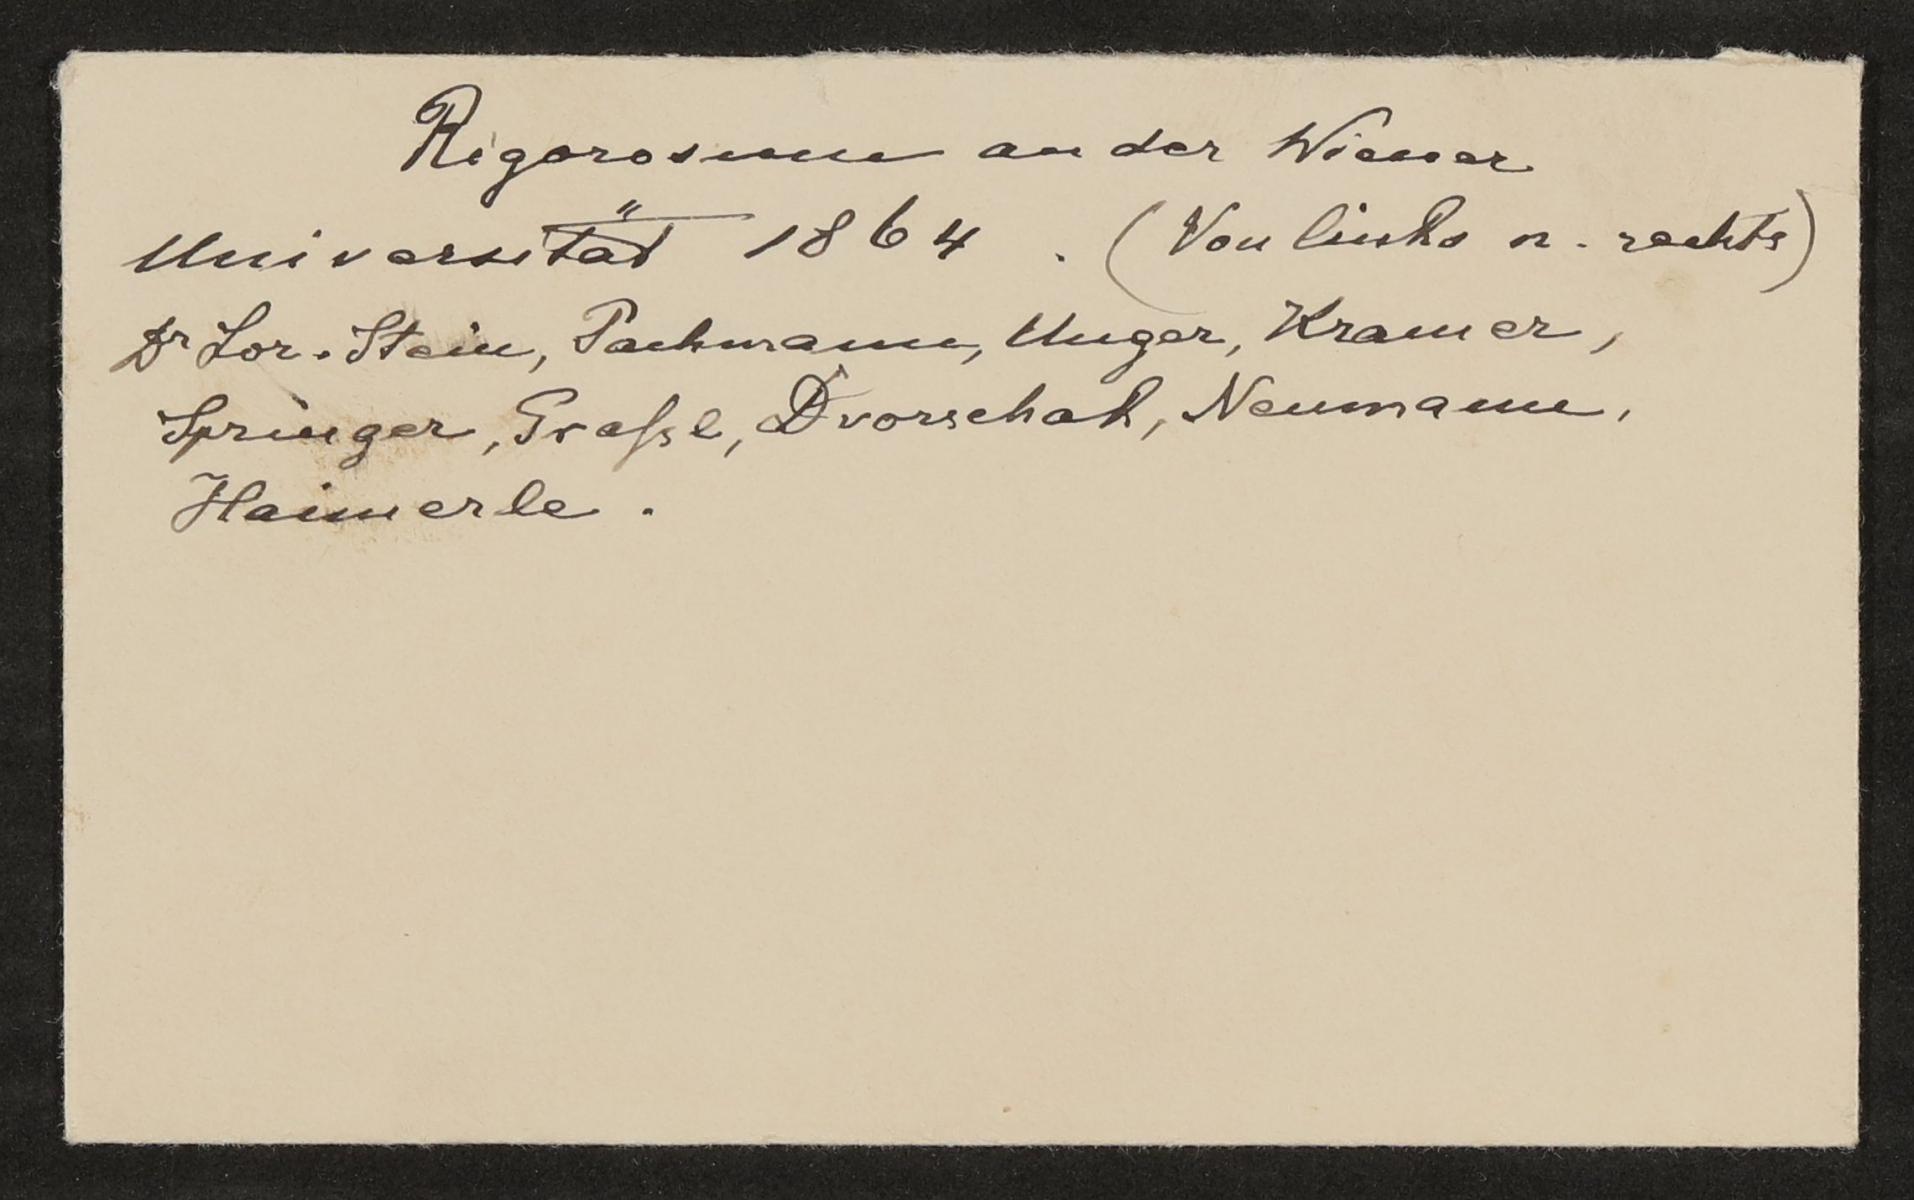 Rigorosum an der Wiener
Universität 1864. (Von links n. rechts)
Dr Lor. Stein, Pachmann, Unger, Kramer,
Springer, Graßl, Dvorschak, Neumann,
Haimerle.